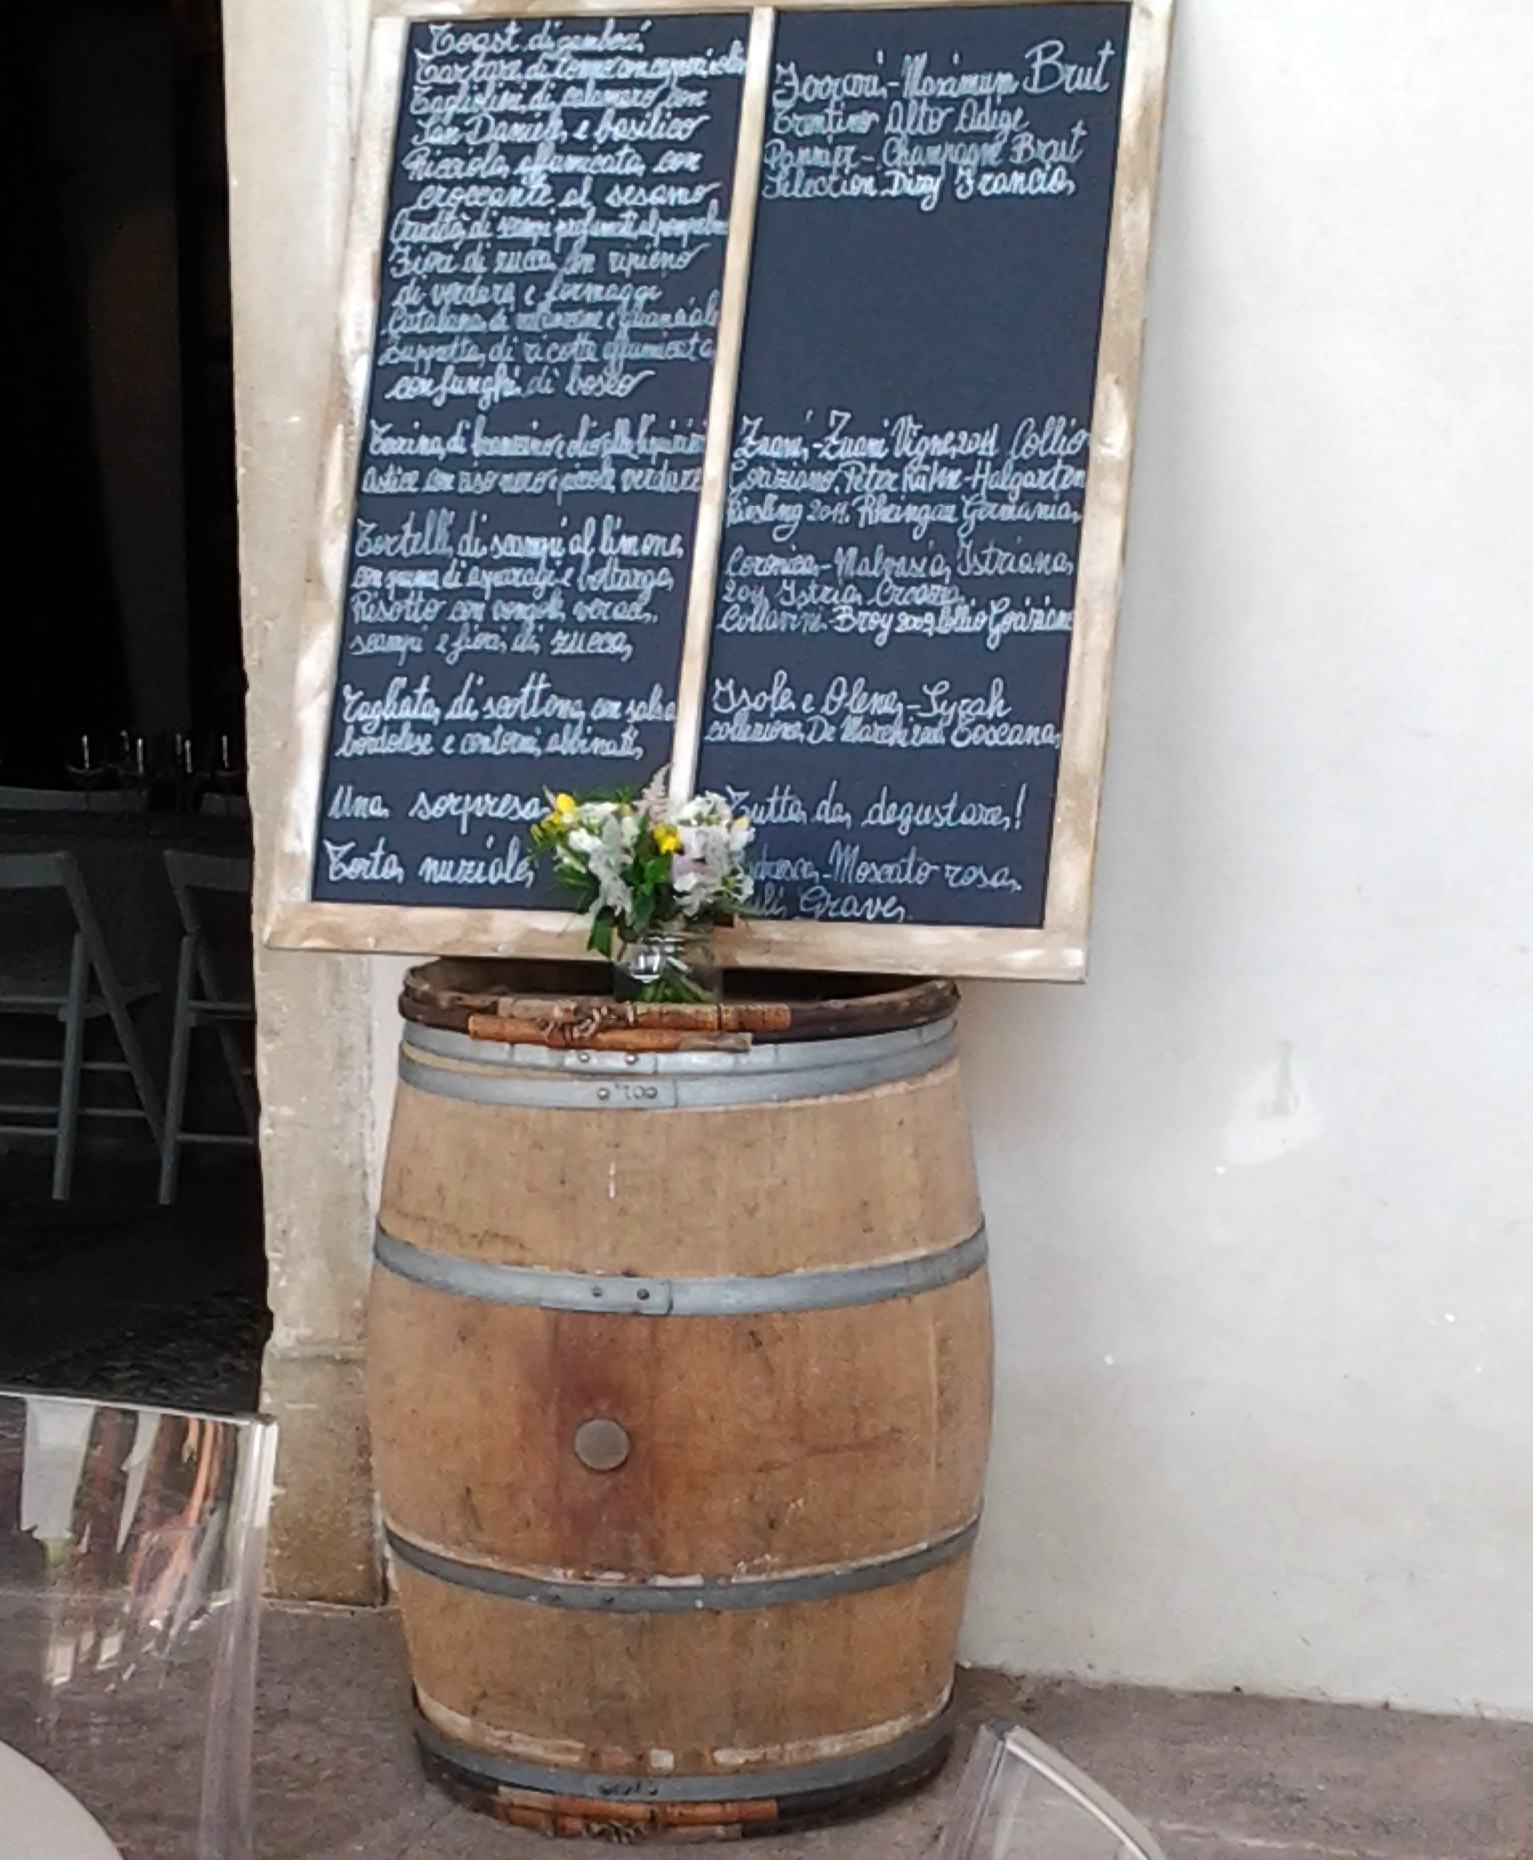 Toast di gamberi
Tartara di tonno con capperi
Tagliolini di calamaro con
San Daniele e basilico
Ricciola affumicata con
croccante al sesamo
Crudità di scampi profumati al pompelmo
Fiori di zucca con ripieno
di verdure e formaggi
Catalana di e guanciale
Zuppetta di ricotta affumicata
con funghi di bosco
Terrina di branzino e olio alla liquirizia
Astice con riso nero e piccole verdure
Tortelli di scampi al limone
con crema di asparagi e bottarga
Risotto con vongole veraci,
scampi e fiori di zucca
Tagliata di scottona con salsa
bordolese e contorni abbinati
Una sorpresa
Torta nuziale
Ferrari - Maximum Brut
Trentino Alto Adige
Pannier - Champagne Brut
Selection Dizy Francia
Zuani - Zuani Vigne 2011 Collio
Goriziano. Peter Kühn - Halgarten
Riesling 2011. Rheingau Germania
Coronica - Malvasia Istriana
2011 Istria Croazia
Collavini - Broy 2009 Collio Goriziano
Isole e Olena - Syrah
collezione De Marchi Toscana
Tutta da degustare!
Moscato rosa
Grave